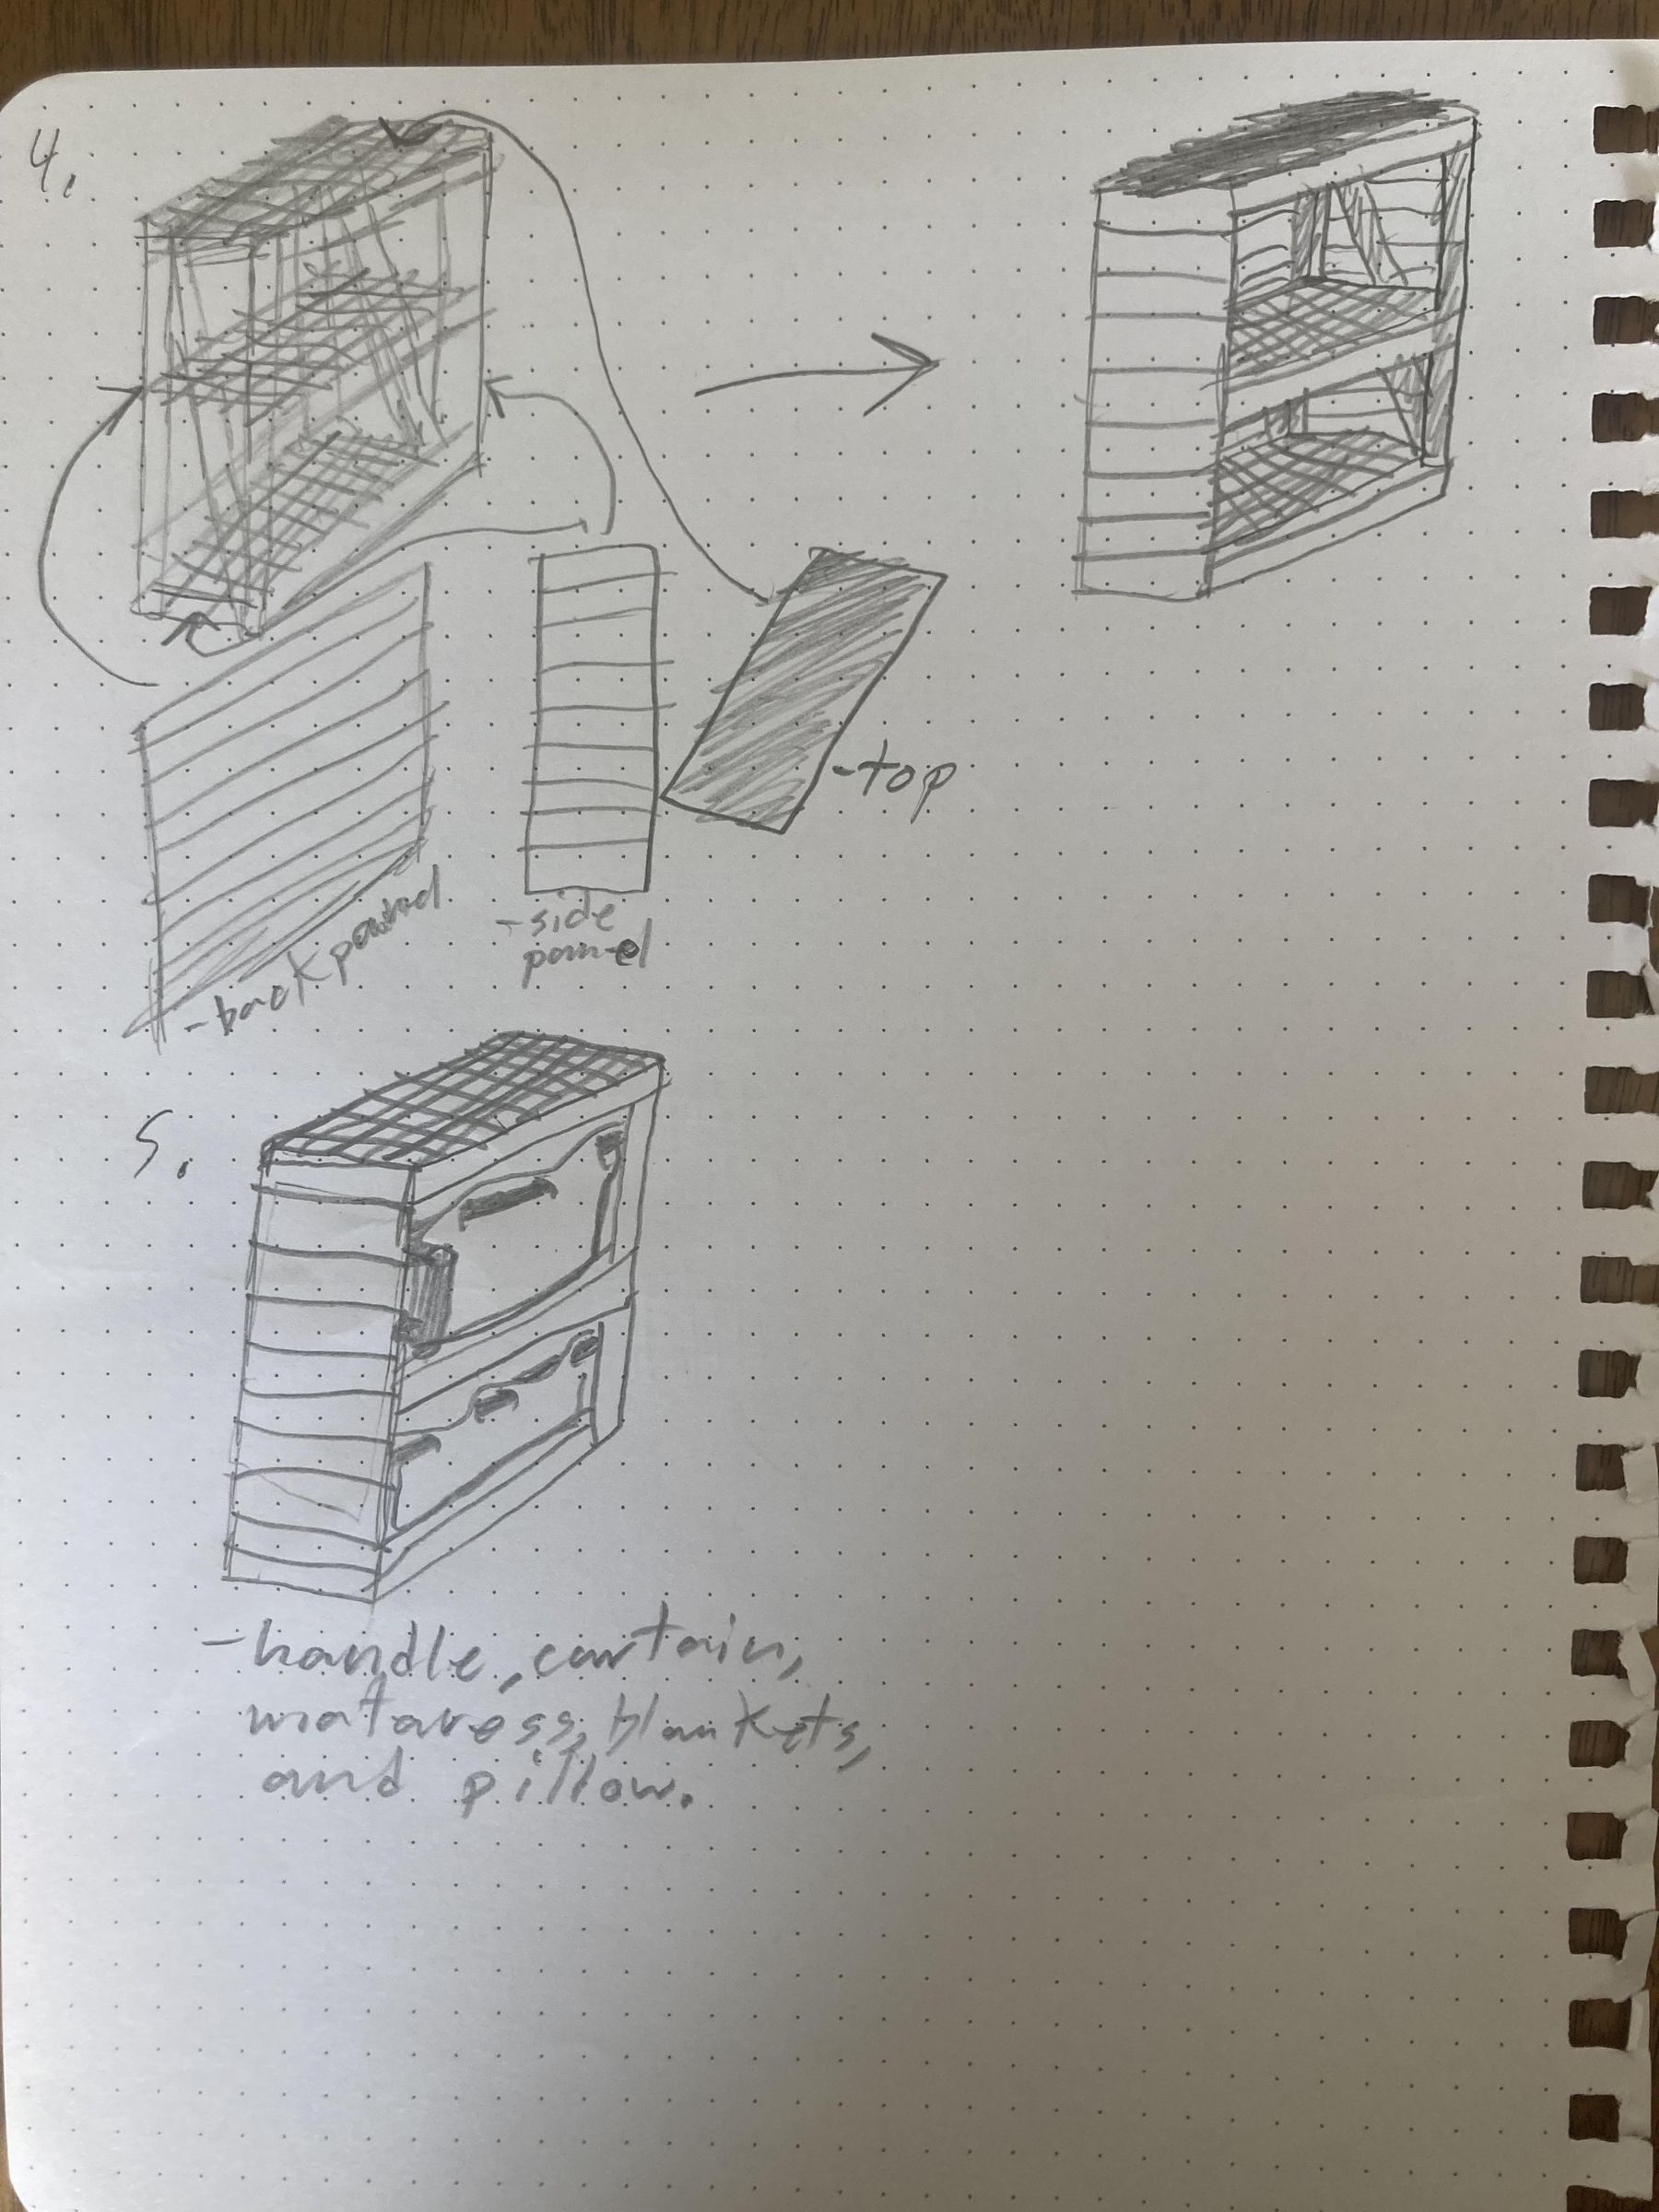 4.
-top
-backpannel
-side
pannel
5.
-handle, curtain,
mataress, blankets,
and pillow.